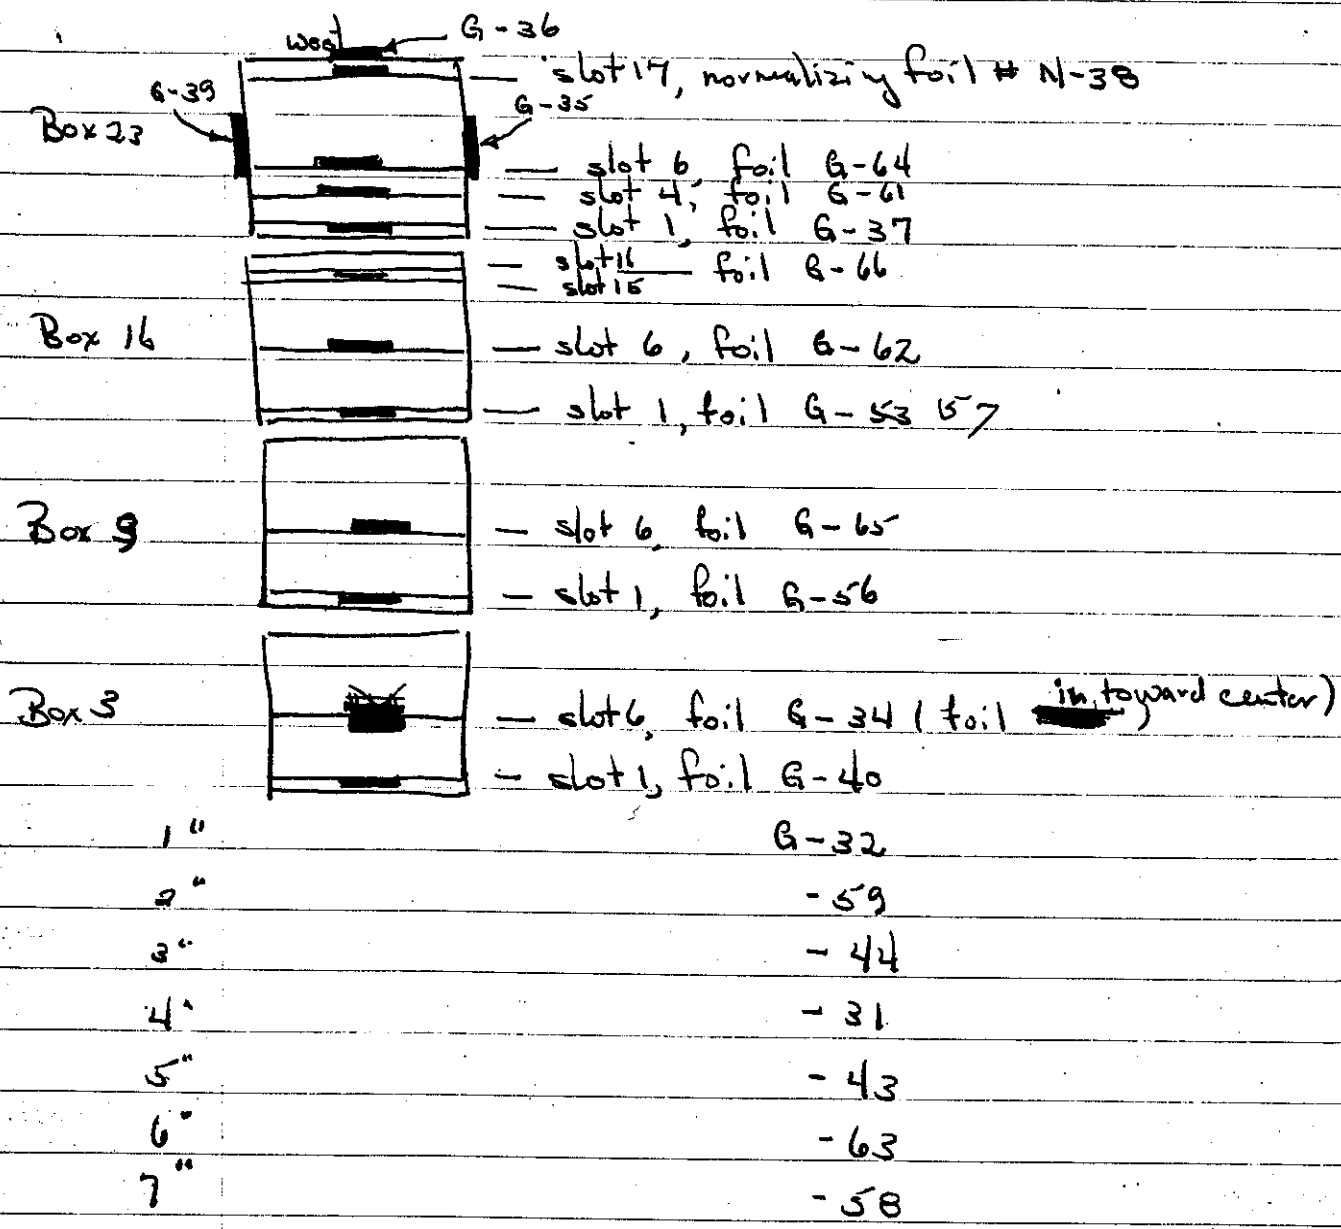 West G-36
slot 17, normalizing foil # N-38
G-39
G-35
Box 23
slot 6, foil G-64
slot 4, foil G-61
slot 1, foil G-37
slot 16 foil G-66
slot 15
Box 16
slot 6, foil G-62
slot 1, foil G-53 57
Box 9
slot 6, foil G-65
slot 1, foil G-56
in, toward center)
Box 3
slot 6, foil G-34 (foil )
slot 1, foil G-40
1" G-32
2" -59
3" -44
4" -31
5" -43
6" -63
7" -58